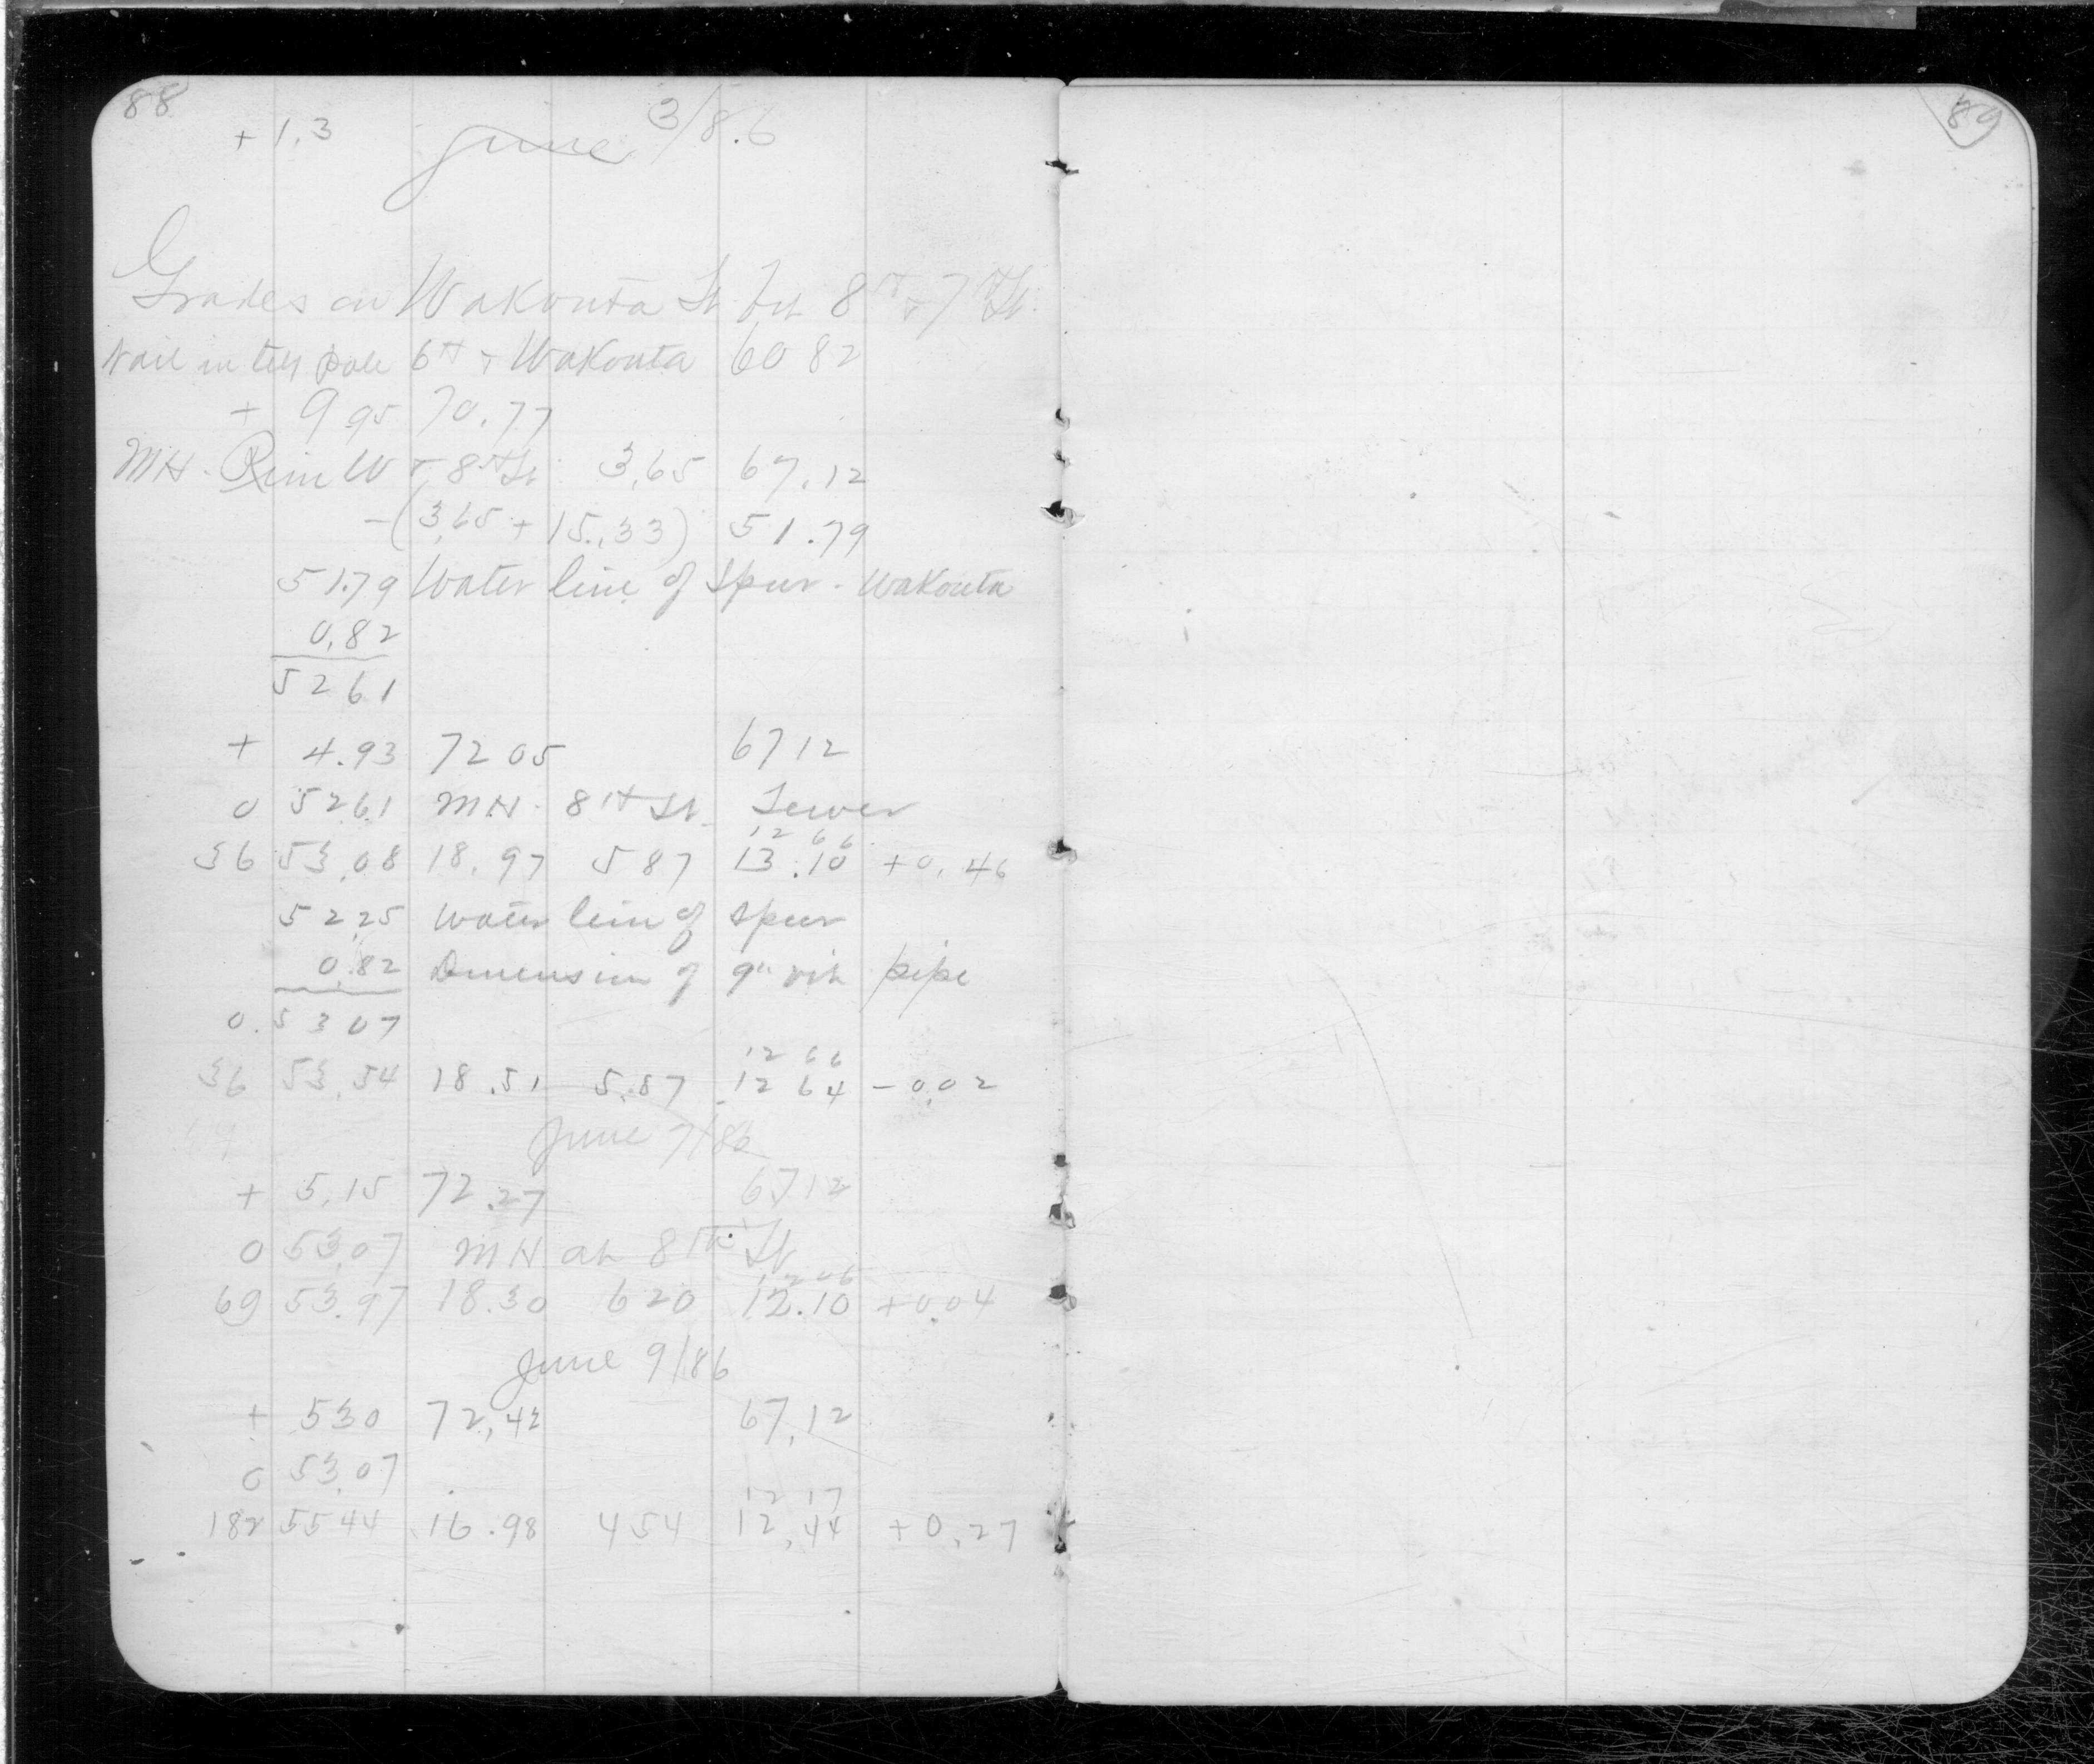 88
+ 1.3 June 3/86
Grades on Wakouta St bet 8th & 7th St.
Nail in tell pole 6th & Wakouta 60 82
+ 9 95 70.77
MH. Rim W & 8th St. 3.65 67.12
-(3.65 + 15.33) 51.79
51.79 Water line of Spur. Wakouta
0.82
52 61
+ 4.93 72 05 67 12
0 52.61 MH. 8th St. Sewer
12 66
36 53.08 18.97 5 87 13.10 +0.46
52.25 Water line of Spur
0.82 Dimension of 9" vit pipe
0. 53 07
12 66
36 53.54 18.51 5.87 12 64 - 0.02
June 7/86
+ 5.15 72.27 67 12
0 53.07 MH at 8th St
12 06
69 53.97 18.30 6 20 12.10 +0.04
June 9/86
+ 5 30 72.42 67.12
0 53.07
12 17
182 55 44 16.98 4 54 12.44 +0.27
89